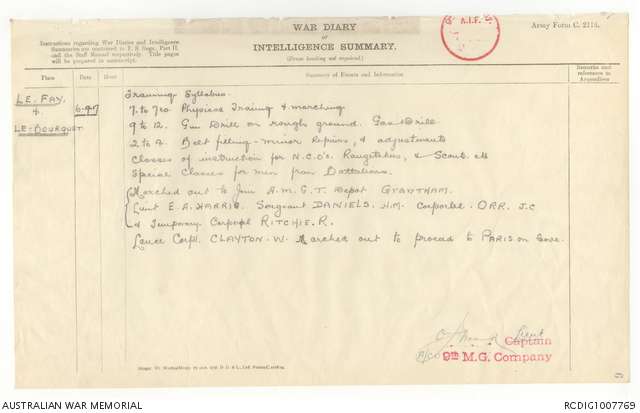 WAR DIARY
or
INTELLIGENCE SUMMARY.
(Erase heading not required.)
Army Form C. 2118.
A.I.F.
Instructions regarding War Diaries and Intelligence
Summaries are contained in F. S. Regs., Part II.
and the Staff Manual respectively. Title pages
will be prepared in manuscript.
Place Date Hour Summary of Events and Information Remarks and references to Appendices
LE-FAY
&
LE-BOURQUET
6.9.17
Training Syllabus.
7. to 7.30 Physical Traing & marching
9 to 12. Gun Drill on rough ground. Gas Drill
2 to 4. Belt filling - minor Repairs, & adjustments
Classes of instruction for N.C.O's. Rangetakers, & Scouts etc
Special Classes for men from Battalions.
Marched out to Join A.M.G.T. Depot GRANTHAM.
Lieut E.A. HARRIS. Sergeant DANIELS. H.M. Corporal. ORR. J.C
& Temporary Corporal RITCHIE. R.
Lance Corpl. CLAYTON. W. Marched out to proceed to PARIS on leave.
Lieut
Captain
9th M.G. Company
AUSTRALIAN WAR MEMORIAL
RCDIG1007769